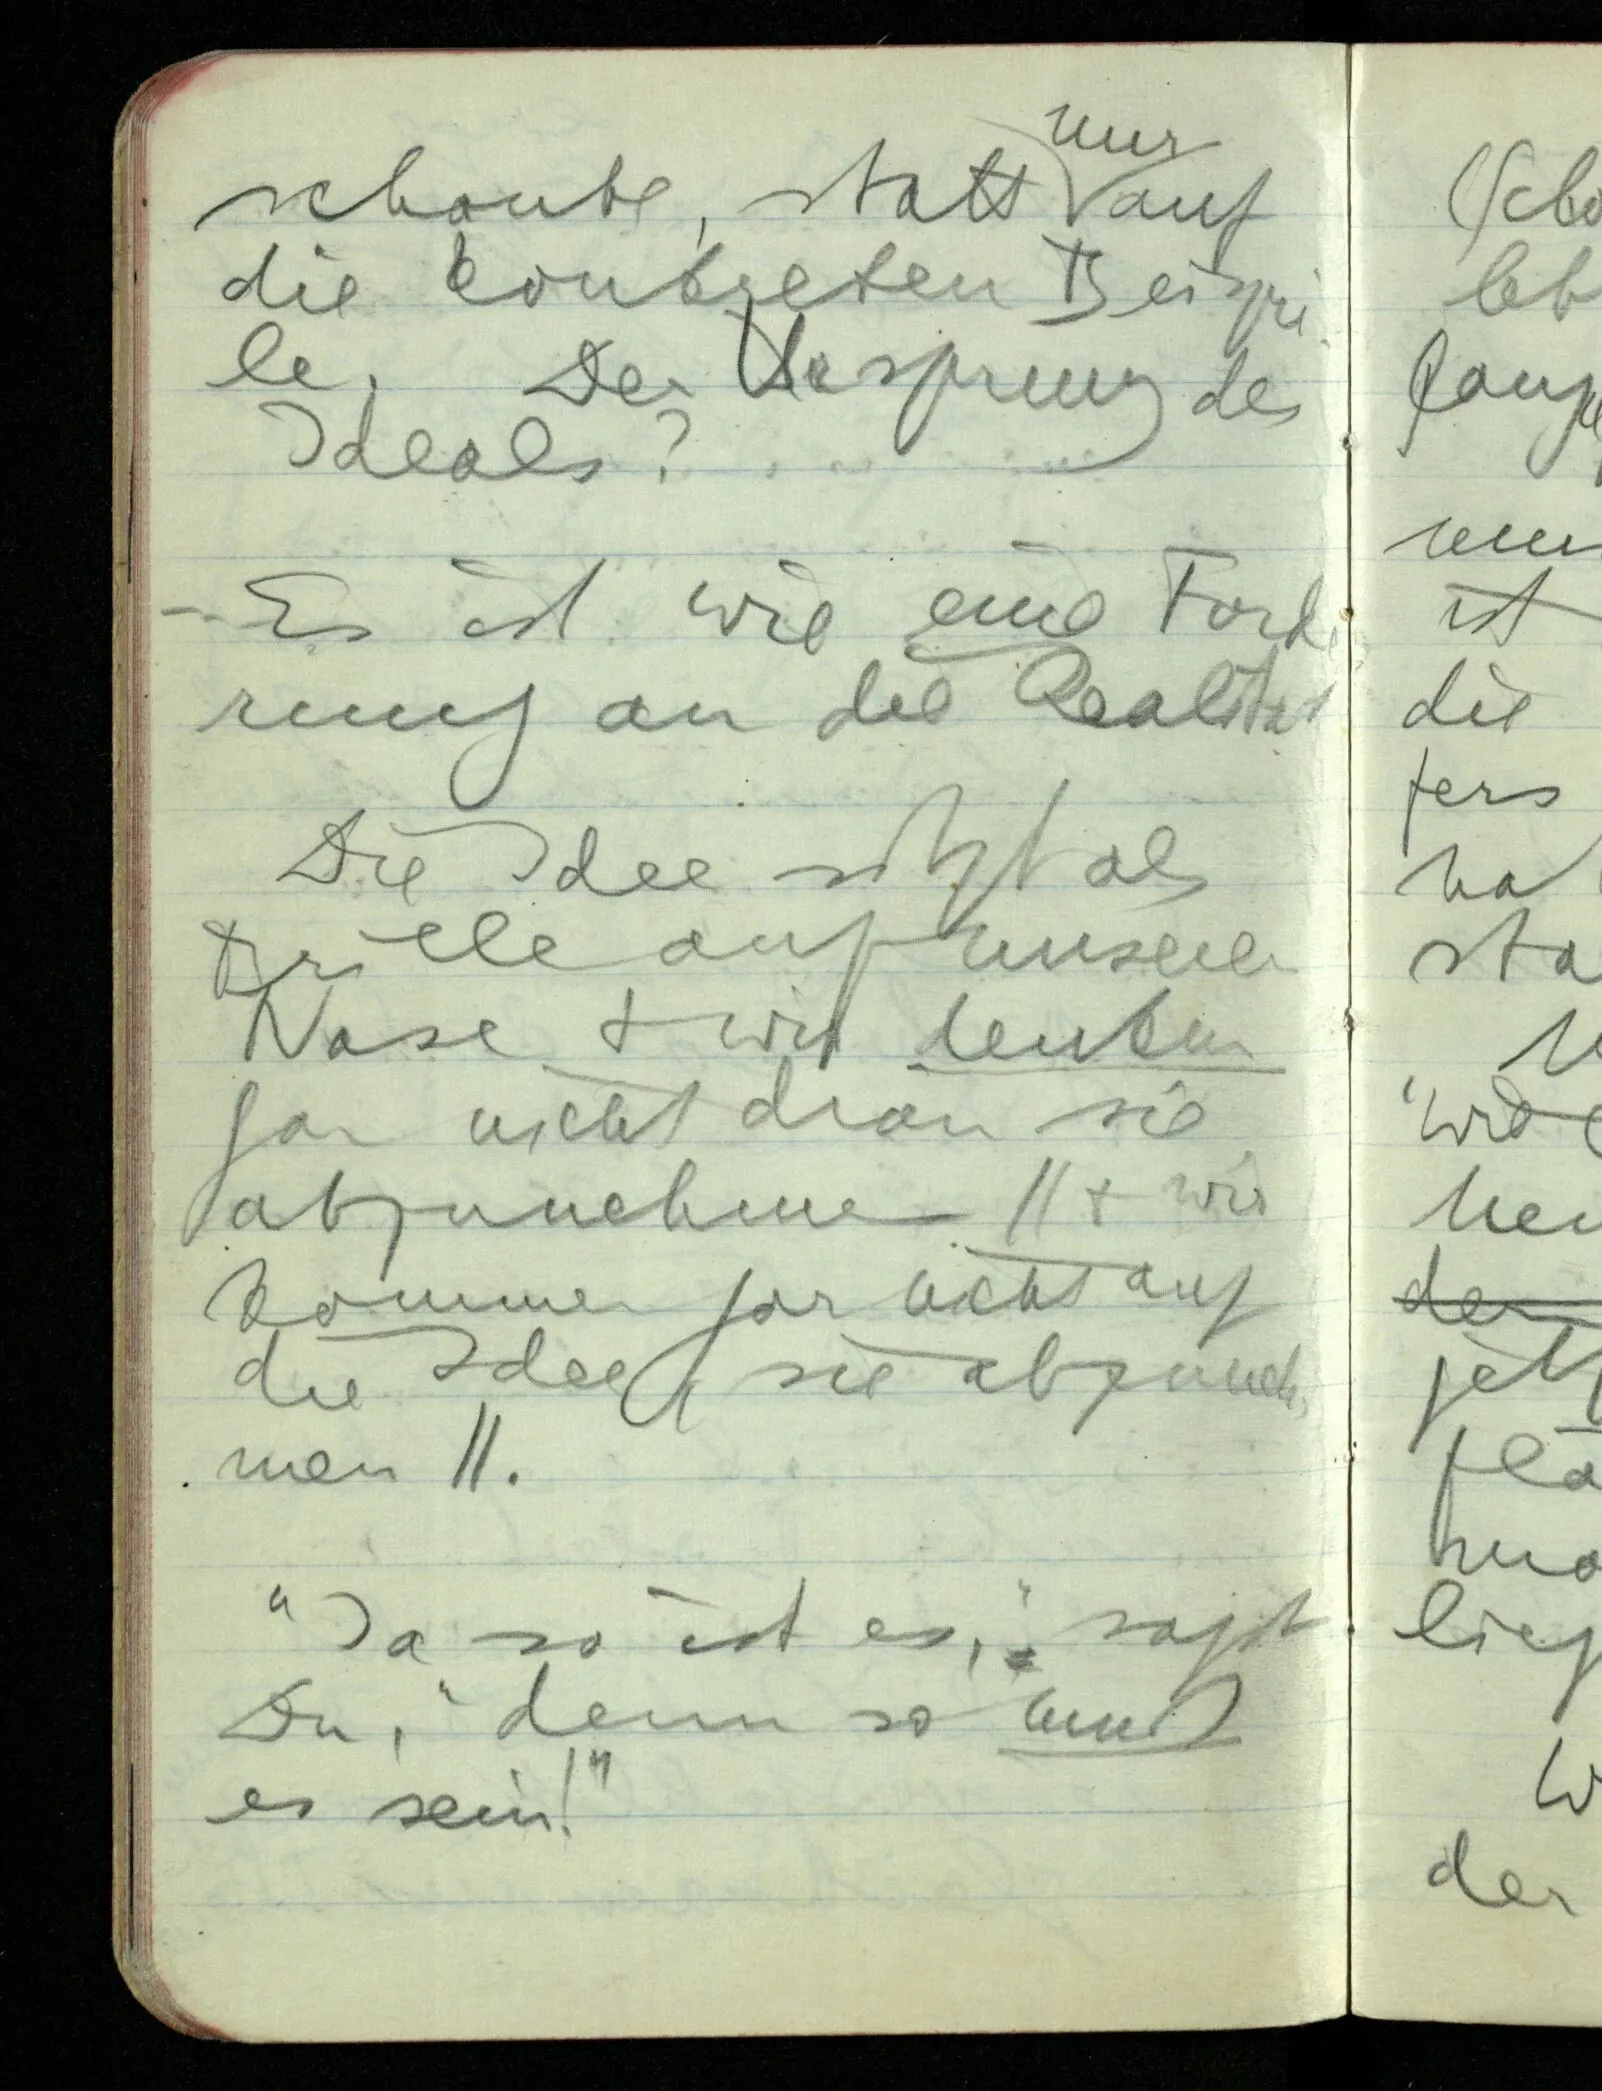 nur
schaute, statt auf
die konkreten Beispie
le. Der Ursprung des
Ideals?
– Es ist wie eine Forde
rung an die Realität
Die Idee sitzt als
Brille auf unserer
Nase & wir denken
gar nicht dran sie
abzunehmen // & wir
kommen gar nicht auf
die Idee, sie abzuneh
men //.
"Ja so ist es," sagst
Du, "denn so muß
es sein!"
ist
die
fers
der
der